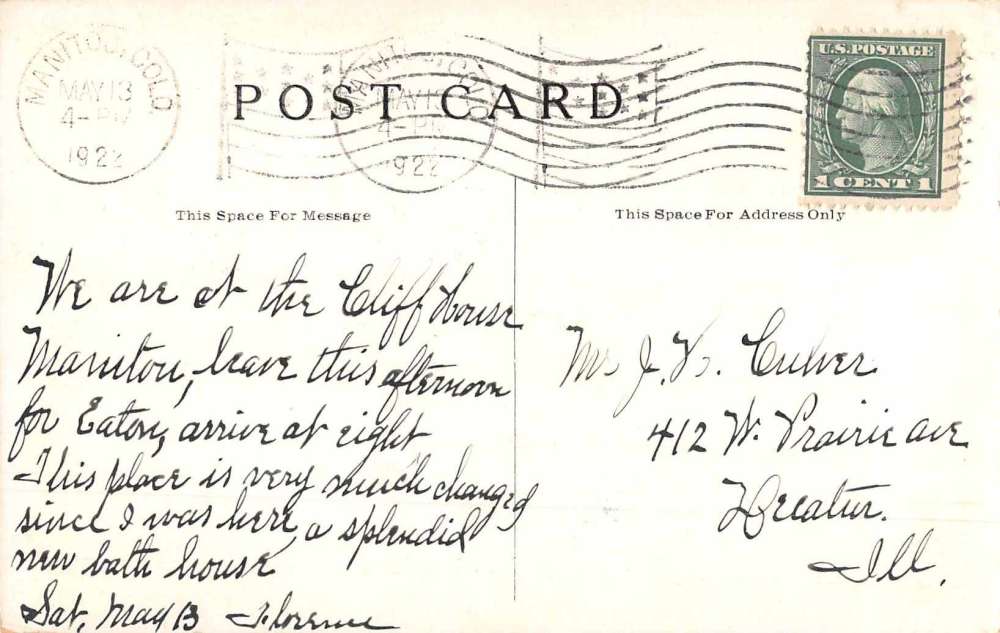 MANITOU, COLO
MAY 13
4-PM
1922
MANITOU, COLO
MAY 13
4-PM
1922
U.S. POSTAGE
1 CENT 1
POST CARD
This Space For Message
This Space For Address Only
We are at the Cliff House
Manitou, leave this afternoon
for Eaton, arrive at eight
This place is very much changed
since I was here, a splendid
new bath house
Sat, May 13 Florence
J. Culver
412 W. Prairie ave
Decatur.
Ill.